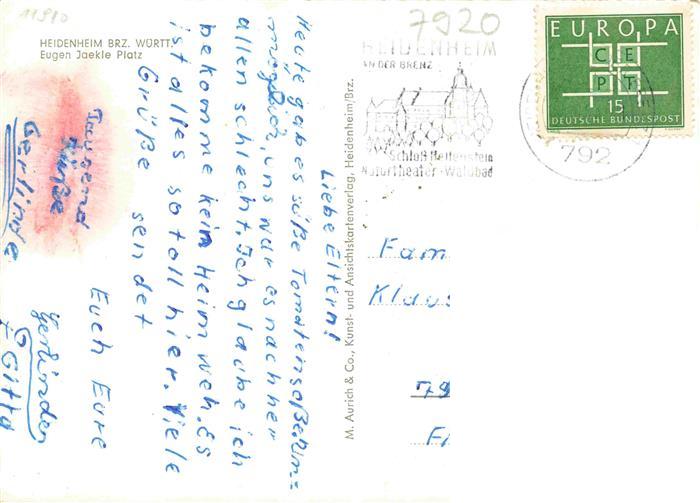 11910
HEIDENHEIM BRZ. WÜRTT.
Eugen Jaekle Platz
7920
HEIDENHEIM
AN DER BRENZ
Schloß Hellenstein
Naturtheater-Waldbad
EUROPA
CEPT
15
DEUTSCHE BUNDESPOST
792
M. Aurich & Co., Kunst- und Ansichtskartenverlag, Heidenheim/Brz.
Liebe Eltern!
Heute gab es süße Tomatensoße. Un=
möglich, uns war es nachher
allen schlecht. Ich glaube ich
bekomme kein Heimweh. Es
ist alles so toll hier. Viele
Grüße sendet
Euch Eure
Gerlinde
+ Gitta
Grüße
Gerlinde
Fam
Klaus
79
F